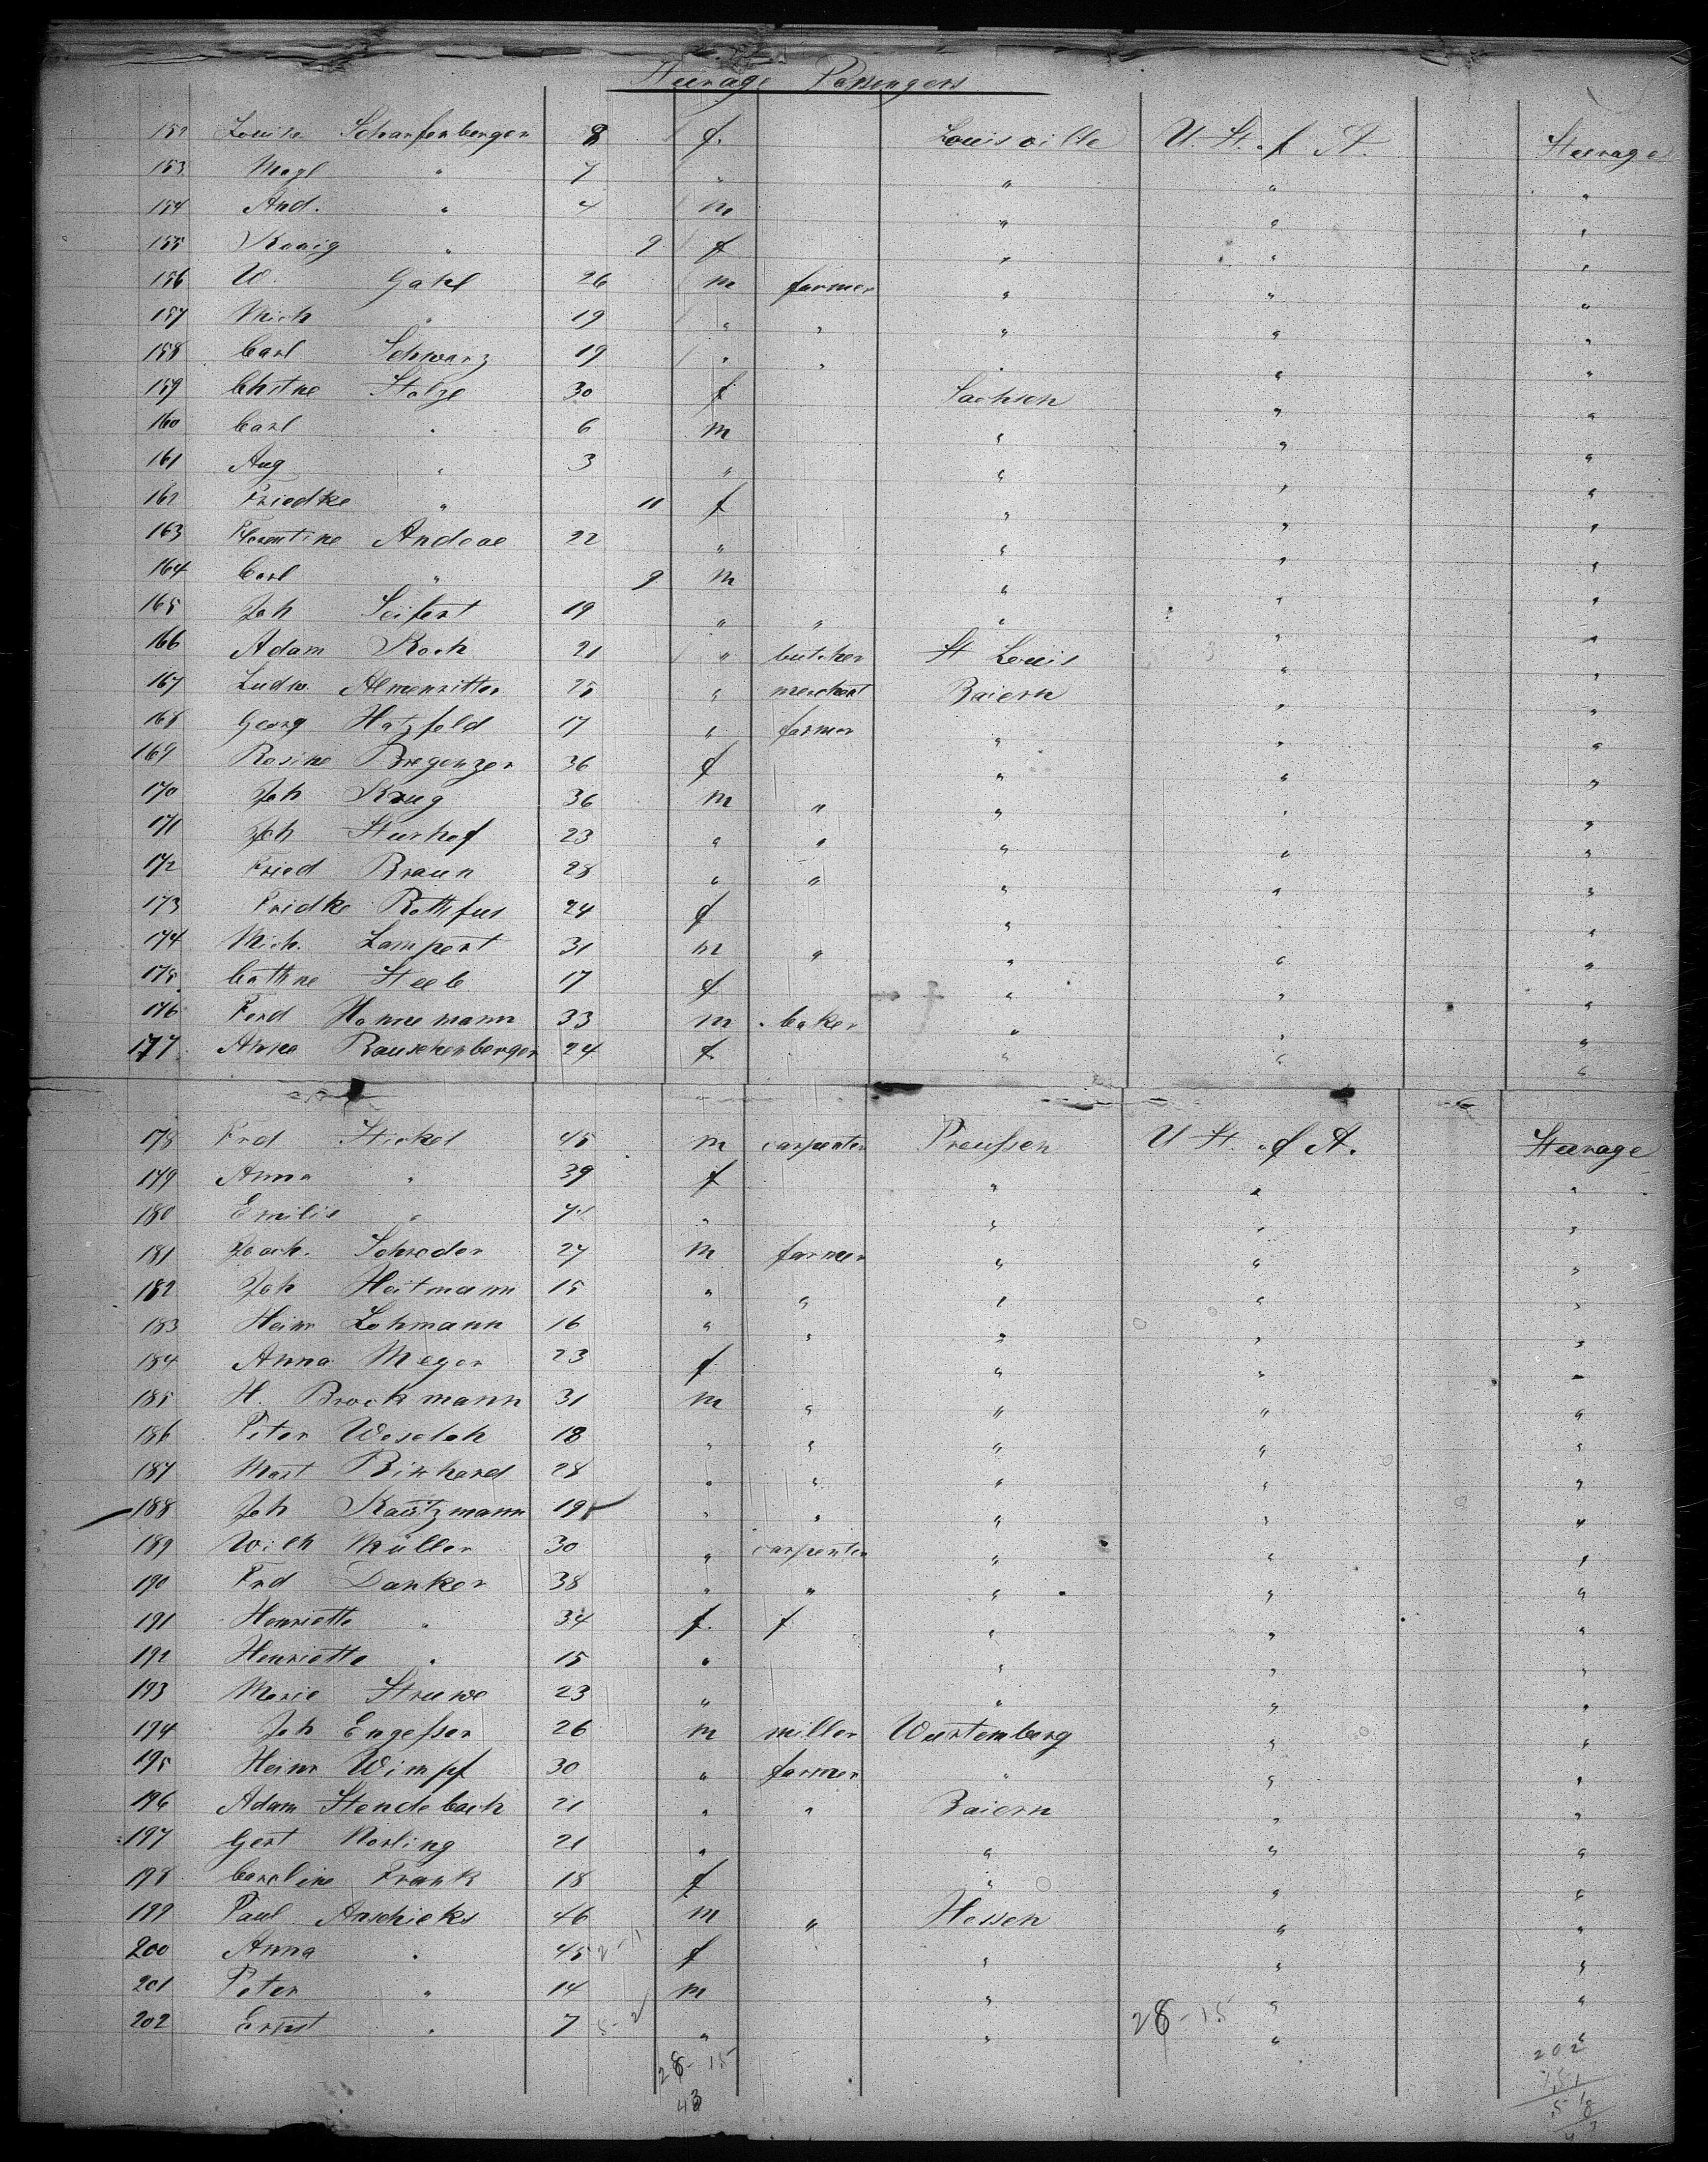 Steerage Passengers
152 Louise Scharfenberger 8 f. Louisville U. St. of A. Steerage
153 Magl " 7 " " " "
154 And. " 4 m " " "
155 " 9 f " " "
156 W. Gahl 26 m farmer " " "
157 Mich " 19 " " " " "
158 Carl Schwarz 19 " " " " "
159 Chstne Stolze 30 f Sachsen " "
160 Carl " 6 m " " "
161 Aug " 3 " " " "
162 Friedke " 11 f " " "
163 Florentine Andeae 22 " " " "
164 Carl " 9 m " " "
165 Joh Seifert 19 " " " " "
166 Adam Koch 21 " butcher St Louis " "
167 Ludw. Almenritter 25 " merchant Baiern " "
168 Georg Hatzfeld 17 " farmer " " "
169 Rosine Bregenzer 36 f " " "
170 Joh Krug 36 m " " " "
171 Joh Sturhof 23 " " " " "
172 Fried Braun 28 " " " " "
173 Fridke Rothfus 24 f " " "
174 Mich. Lampert 31 m " " " "
175 Cathne Steeb 17 f " " "
176 Ferd Hannemann 33 m baker " " "
177 Anne Rauschenberger 24 f " " "
178 Frd Stickel 45 m carpenter Preussen U St. of A. Steerage
179 Anna " 39 f " " "
180 Emilie " 7 " " " "
181 Joach. Schroder 27 m farmer " " "
182 Joh Heitmann 15 " " " " "
183 Heinr Lohmann 16 " " " " "
184 Anna Meyer 23 f " " "
185 H. Brockmann 31 m " " " "
186 Peter Weseloh 18 " " " " "
187 Mart Rinhard 28 " " " " "
188 Joh Kautzmann 19 " " " " "
189 Wilh Müller 30 " carpenter " " "
190 Frd Danker 38 " " " " "
191 Henriette " 34 f. f " " "
192 Henriette " 15 " " " "
193 Marie Struwe 23 " " " "
194 Joh Engesser 26 m miller Wurtemberg " "
195 Heinr Wimpf 30 " farmer " " "
196 Adam Stendebach 21 " " Baiern " "
197 Gert Norling 21 " " " "
198 Caroline Frank 18 f " " "
199 Paul Anschieks 46 m " Hessen " "
200 Anna " 45 2-11 f " " "
201 Peter " 14 m " " "
202 Ernst " 7 5-2 " " " "
28-15
28-15
43
202
151
51
8